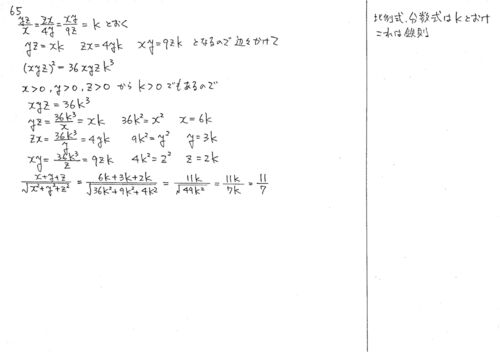 65
yz/x = zx/4y = xy/9z = k とおく
yz=xk zx=4yk xy=9zk となるので 辺々かけて
(xyz)²=36xyzk³
x>0, y>0, z>0 から k>0 でもあるので
xyz=36k³
yz=36k³/x=xk 36k²=x² x=6k
zx=36k³/y=4yk 9k²=y² y=3k
xy=36k³/z=9zk 4k²=z² z=2k
(x+y+z)/√(x²+y²+z²) = (6k+3k+2k)/√(36k²+9k²+4k²) = 11k/√(49k²) = 11k/7k = 11/7
比例式、分数式は k とおけ
これは鉄則